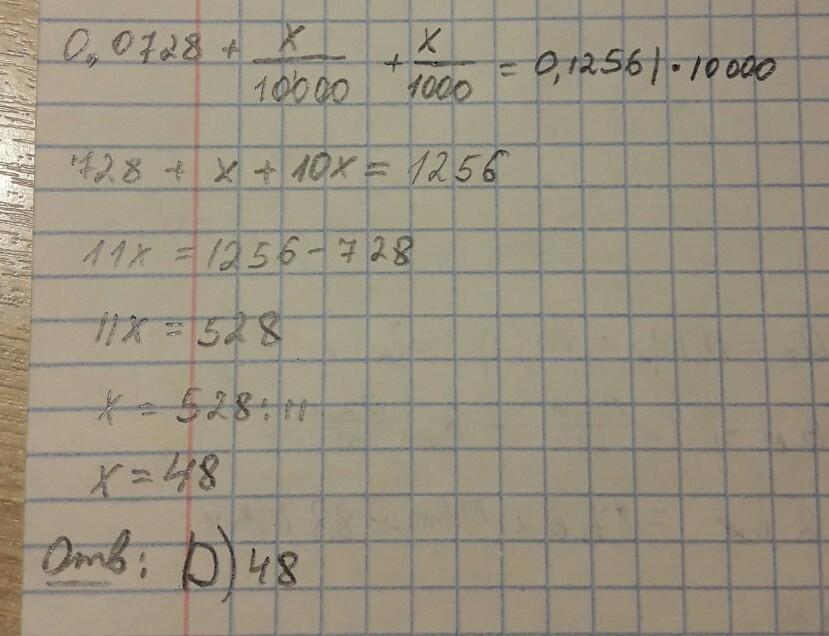 0,0728 + x/10000 + x/1000 = 0,1256 | · 10000
728 + x + 10x = 1256
11x = 1256 - 728
11x = 528
x = 528 : 11
x = 48
Отв: D) 48